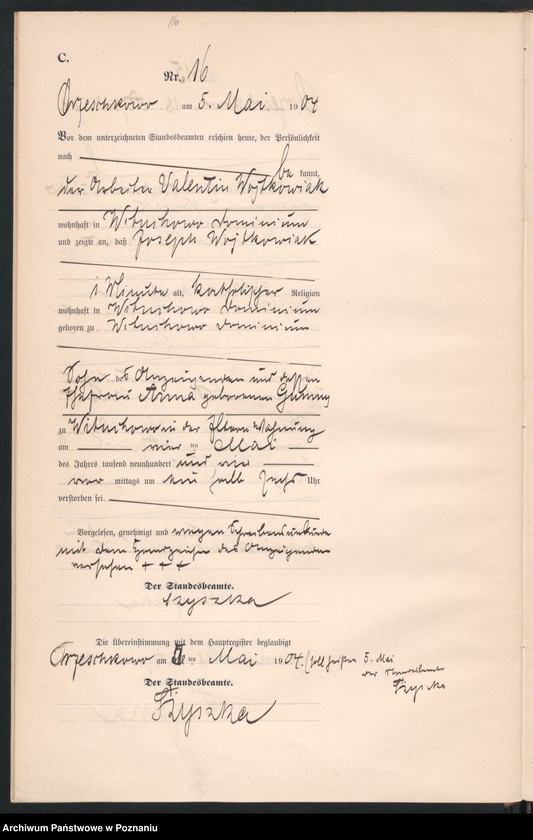 16
C.
Nr. 16
Orzeschkowo am 5. Mai 1904
Vor dem unterzeichneten Standesbeamten erschien heute, der Persönlichkeit
nach
be kannt,
der Arbeiter Valentin Wojtkowiak
wohnhaft in Wituchowo Dominium
und zeigte an, daß Joseph Wojtkowiak
1 Minute alt, katholischer Religion
wohnhaft in Wituchowo Dominium
geboren zu Wituchowo Dominium
Sohn des Anzeigenden und dessen
Ehefrau Anna geborenen
zu Wituchowo in der Eltern Wohnung
am Mai
des Jahres tausend neunhundert und vier
vor mittags um ein halb sechs Uhr
verstorben sei.
Vorgelesen, genehmigt und wegen Schreibensunkunde
mit dem Handzeichen des Anzeigenden
versehen + + +
Der Standesbeamte.
Szyszka
Die Übereinstimmung mit dem Hauptregister beglaubigt
Orzeschkowo am 5 ten Mai 1904. (soll heißen 5. Mai
Der Standesbeamte
Szyszka
Der Standesbeamte.
Szyszka
Archiwum Państwowe w Poznaniu